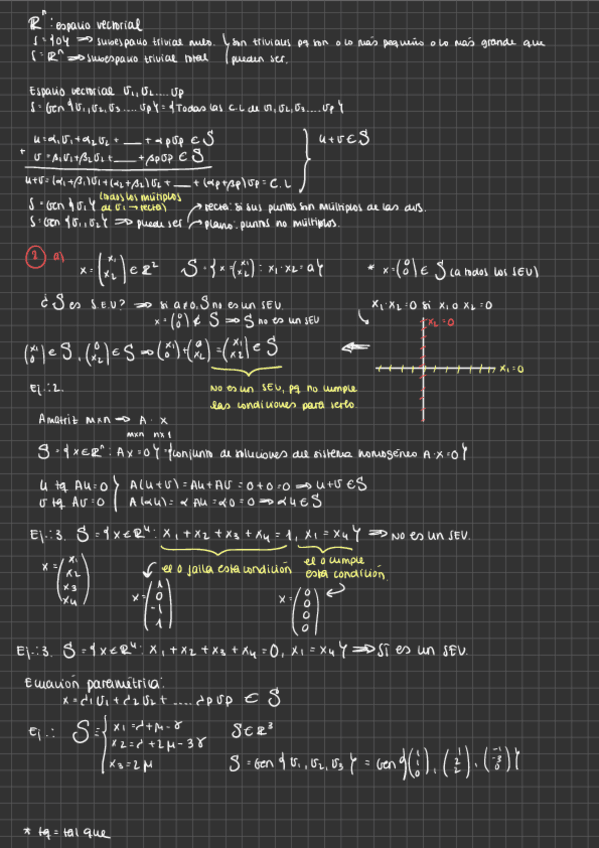 ℝⁿ: espacio vectorial
S = {0} ⇒ subespacio trivial nulo. } son triviales pq son o lo más pequeño o lo más grande que
S = ℝⁿ ⇒ subespacio trivial total } pueden ser.
Espacio vectorial v₁, v₂ .... vp
S = Gen {v₁, v₂, v₃ .... vp} = {Todas las C.L de v₁, v₂, v₃ .... vp}
u = α₁v₁ + α₂v₂ + __ + αpvp ∈ S
+ v = β₁v₁ + β₂v₂ + __ + βpvp ∈ S } u + v ∈ S
u+v = (α₁+β₁)v₁ + (α₂+β₂)v₂ + __ + (αp+βp)vp = C.L
S = Gen {v₁} (todos los múltiplos de v₁ → recta)
S = Gen {v₁, v₂} ⇒ puede ser
recta: si sus puntos son múltiplos de las dos.
plano: puntos no múltiplos.
1 a) x = (x₁ x₂) ∈ ℝ² S = {x = (x₁ x₂) : x₁·x₂ = a} * x = (0 0) ∈ S (a todos los SEV)
¿S es S.E.V? ⇒ si a≠0, S no es un SEV. x₁·x₂ = 0 si x₁ o x₂ = 0
x = (0 0) ∉ S ⇒ S no es un SEV
x₂ = 0
(x₁ 0) ∈ S, (0 x₂) ∈ S ⇒ (x₁ 0) + (0 x₂) = (x₁ x₂) ∈ S
x₁ = 0
No es un SEV, pq no cumple
las condiciones para serlo.
Ej.:2.
A matriz mxn ⇒ A · x
mxn nx1
S = {x ∈ ℝⁿ : Ax = 0} {conjunto de soluciones del sistema homogéneo A·x = 0}
u tq Au = 0 } A(u+v) = Au + Av = 0 + 0 = 0 ⇒ u+v ∈ S
v tq Av = 0 } A(αu) = α Au = α0 = 0 ⇒ αu ∈ S
Ej.:3. S = {x ∈ ℝ⁴ : x₁ + x₂ + x₃ + x₄ = 1, x₁ = x₄} ⇒ No es un SEV.
x = (x₁ x₂ x₃ x₄)
el 0 falla esta condición
el 0 cumple
esta condición
x = (1 0 -1 1)
x = (0 0 0 0)
Ej.:3. S = {x ∈ ℝ⁴ : x₁ + x₂ + x₃ + x₄ = 0, x₁ = x₄} ⇒ Sí es un SEV.
Ecuación paramétrica:
x = λ₁v₁ + λ₂v₂ + .... λpvp ∈ S
Ej.: S = { x₁ = λ + μ - γ S ∈ ℝ³
x₂ = λ + 2μ - 3γ
x₃ = 2μ
S = Gen {v₁, v₂, v₃} = Gen {(1 1 0), (1 2 2), (-1 -3 0)}
* tq = tal que